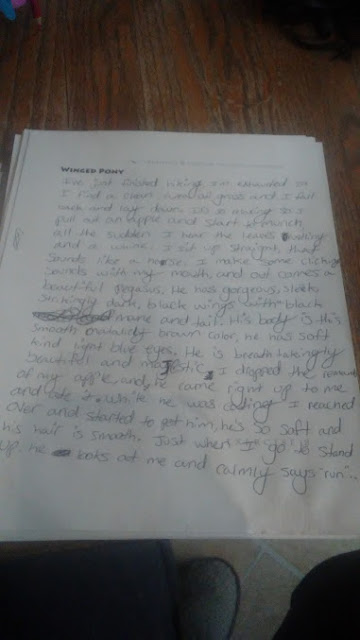 WINGED PONY
I've just finished hiking, I'm exhausted so
I find a clean of grass and I fall
back and lay down. so I
pull out an apple and start to munch
all the sudden I hear the leaves rustling
and a whine. I sit up straight, that
sounds like a horse, I make some clicking
sounds with my mouth, and out comes a
beautiful pegasus. He has gorgeous, sleek,
strikingly dark, black wings with black
mane and tail. His body is this
smooth brown color, he has soft
kind light blue eyes. He is breath takingly
beautiful and majestic. I dropped the
of my apple, and he came right up to me
and ate it, while he was eating I reached
over and started to pet him, he's so soft and
his hair is smooth. Just when I go to stand
up. he looks at me and calmly says "run"..